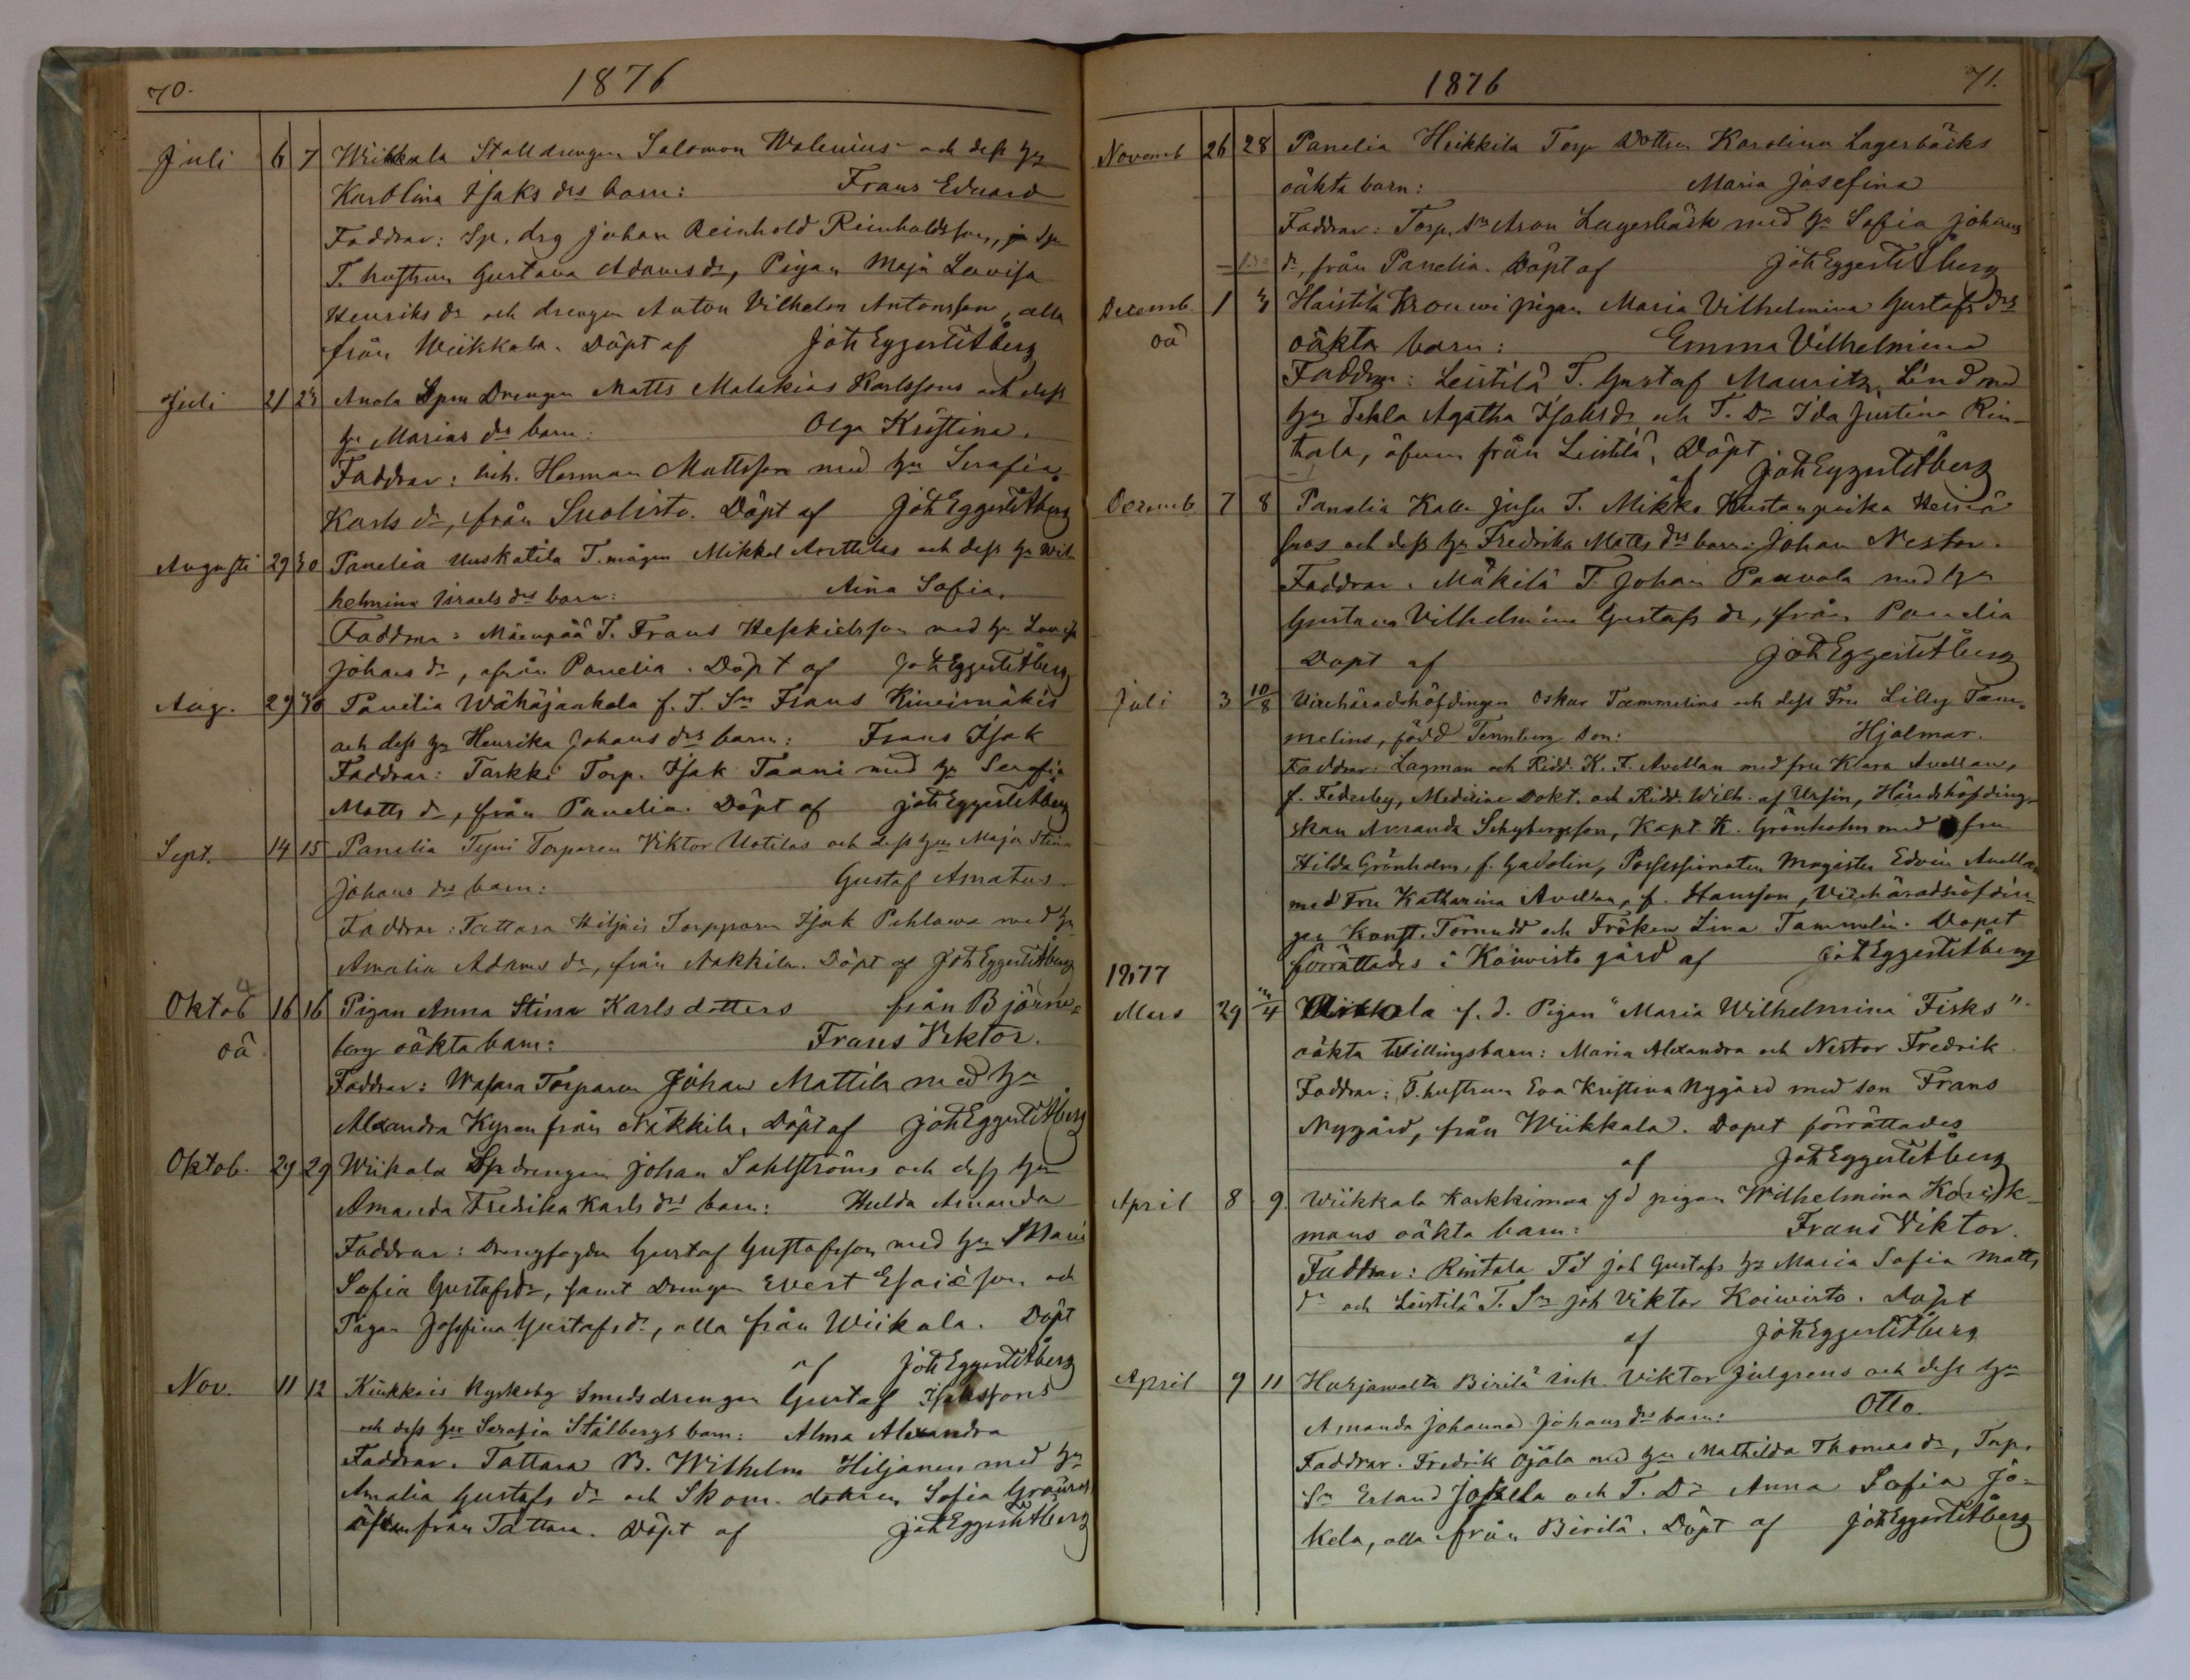 70.
1876
Juli 6 7 Wiikkala Stalldrengen Salomon Walenius och dess hu
Karolina Isaks drs barn: Frans Eduard
Faddrar: Sp. drg Johan Reinhold Reinholdsson,
T. hustrun Gustava Adams dr, Pigan Maja Lovisa
Henriks dr och drengen Anton Vilhelm Antonsson, alla
från Wiikkala. Döpt af Joh Eggertit Åberg
Juli 21 23 Anola Drengen Matts Malakias Karlssons och dess
hu Marias drs barn: Olga Kristina.
Faddrar: inh. Herman Mattsson med hu Serafia
Karls dr, från Suolisto. Döpt af Joh Eggertit Åberg
Augusti 29 30 Panelia Uuskatila T. mågen Mikkel Anttilas och dess hu Wil
helmina Israels drs barn: Aina Sofia.
Faddrar: Mäenpää T. Frans Heskielsson med hu Lovisa
Johans dr, från Panelia. Döpt af Joh Eggertit Åberg
Aug. 29 30 Panelia Wähäjankala f. T. Sn Frans Kiveinmäkis
och dess hu Henrika Johans drs barn: Frans Isak
Faddrar: Tarkki Torp. Isak Taani med hu Serafia
Matts dr, från Panelia. Döpt af Joh Eggertit Åberg
Sept. 14 15 Panelia Tyni Torparen Viktor Uotilas och dess hu Maja Stina
Johans drs barn: Gustaf Amatus.
Faddrar: Tattara Hiljais Torpparen Isak Pehlawa med hu
Amalia Adams dr, från Nakkila. Döpt af Joh Eggertit Åberg
Oktob 16 16 Pigan Anna Stina Karlsdotters från Björne-
oä borg oäkta barn: Frans Viktor.
Faddrar: Wasara Torparen Johan Mattila med hu
Alexandra Kyren från Nakkila. Döpt af Joh Eggertit Åberg
Oktob. 29 29 Wiikala Spdrengen Johan Sahlströms och dess hu
Amanda Fredrika Karls drs barn: Hulda Amanda
Faddrar: Drengfogden Gustaf Gustafsson med hu Maria
Sofia Gustafsdr, samt Drengen Evert Esaiæson och
Pigan Josefina Gustafsdr, alla från Wiikala. Döpt
af Joh Eggertit Åberg
Nov. 11 12 Kiukkais Smedsdrengen Gustaf Isakssons
och dess hu Serafia Stålbergs barn: Alma Alexandra
Faddrar. Tattara B. Wilhelm Hiljanen med hu
Amalia Gustafs dr och Skom. dottren Sofia
äfven från Tattara. Döpt af Joh Eggertit Åberg
1876
71.
Novemb 26 28 Panelia Heikkila Torp Dottren Karolina Lagerbäcks
oäkta barn: Maria Josefina
Faddrar: Torp. Sn Aron Lagerbäck med hu Sofia Johans
dr, från Panelia. Döpt af Joh Eggertit Åberg
Decemb. 1 3 Haistila Krouwi pigan Maria Vilhelmina Gustafs drs
oä oäkta barn: Emma Vilhelmina
Faddrar: Leistilä T. Gustaf Mauritz Lind med
hu Tekla Agatha Isaksdr och T. Dr Ida Justina Rin-
tala, äfven från Leistilä. Döpt
af Joh Eggertit Åberg
Decemb 7 8 Panelia Kalle Jusu T. Mikko Kustanpoika Heinä
hos och dess hu Fredrika Matts drs barn: Johan Nestor.
Faddrar. Mäkilä T. Johan Paavola med hu
Gustava Vilhelmina Gustafs dr, från Panelia
Döpt af Joh Eggertit Åberg
Juli 3 10/8 Vicehäradshöfdingen Oskar Tammelins och dess Fru Lilly Tam-
melins, född Tennberg Son: Hjalmar.
Faddrar: Lagman och Ridd. K. F. Avellan med fru Klara Avellan,
f. Federley, Medicine Dokt. och Ridd. Wilh. af Ursin, Häradshöfding-
skan Amanda Schybergsson, Kapt. K. Grönholm med fru
Hilda Grönholm, f. Gadolin, Possessionaten Magister Edvin Avellan
med Fru Katharina Avellan, f. Hansson, Vicehäradshöfdin-
gen Konst. Törnudd och Fröken Lina Tammelin. Dopet
förrättades i Koivisto gård af Joh Eggertit Åberg
1877
Mars 29 /4 Wiikkala f. d. Pigan "Maria Wilhelmina Fisks"
oäkta tvillingsbarn: Maria Alexandra och Nestor Fredrik
Faddrar: T. hustrun Eva Kristina Nygård med son Frans
Nygård, från Wiikkala. Dopet förrättades
af Joh Eggertit Åberg
April 8 9. Wiikkala Karkkimaa f d pigan Wilhelmina Korsk-
mans oäkta barn: Frans Viktor.
Faddrar: Rintala Joh Gustafs hu Maria Sofia Matts
dr och Leistilä T. Sn Joh Viktor Koivisto. Döpt
af Joh Eggertit Åberg
April 9 11 Harjawalta Birilä inh. Viktor Julgrens och dess hu
Amanda Johanna Johans drs barn: Otto.
Faddrar. Fredrik Ojala med hu Mathilda Thomas dr, Torp.
Sn Erland Jokela och T. Dr Anna Sofia Jo-
kela, alla från Birilä. Döpt af Joh Eggertit Åberg